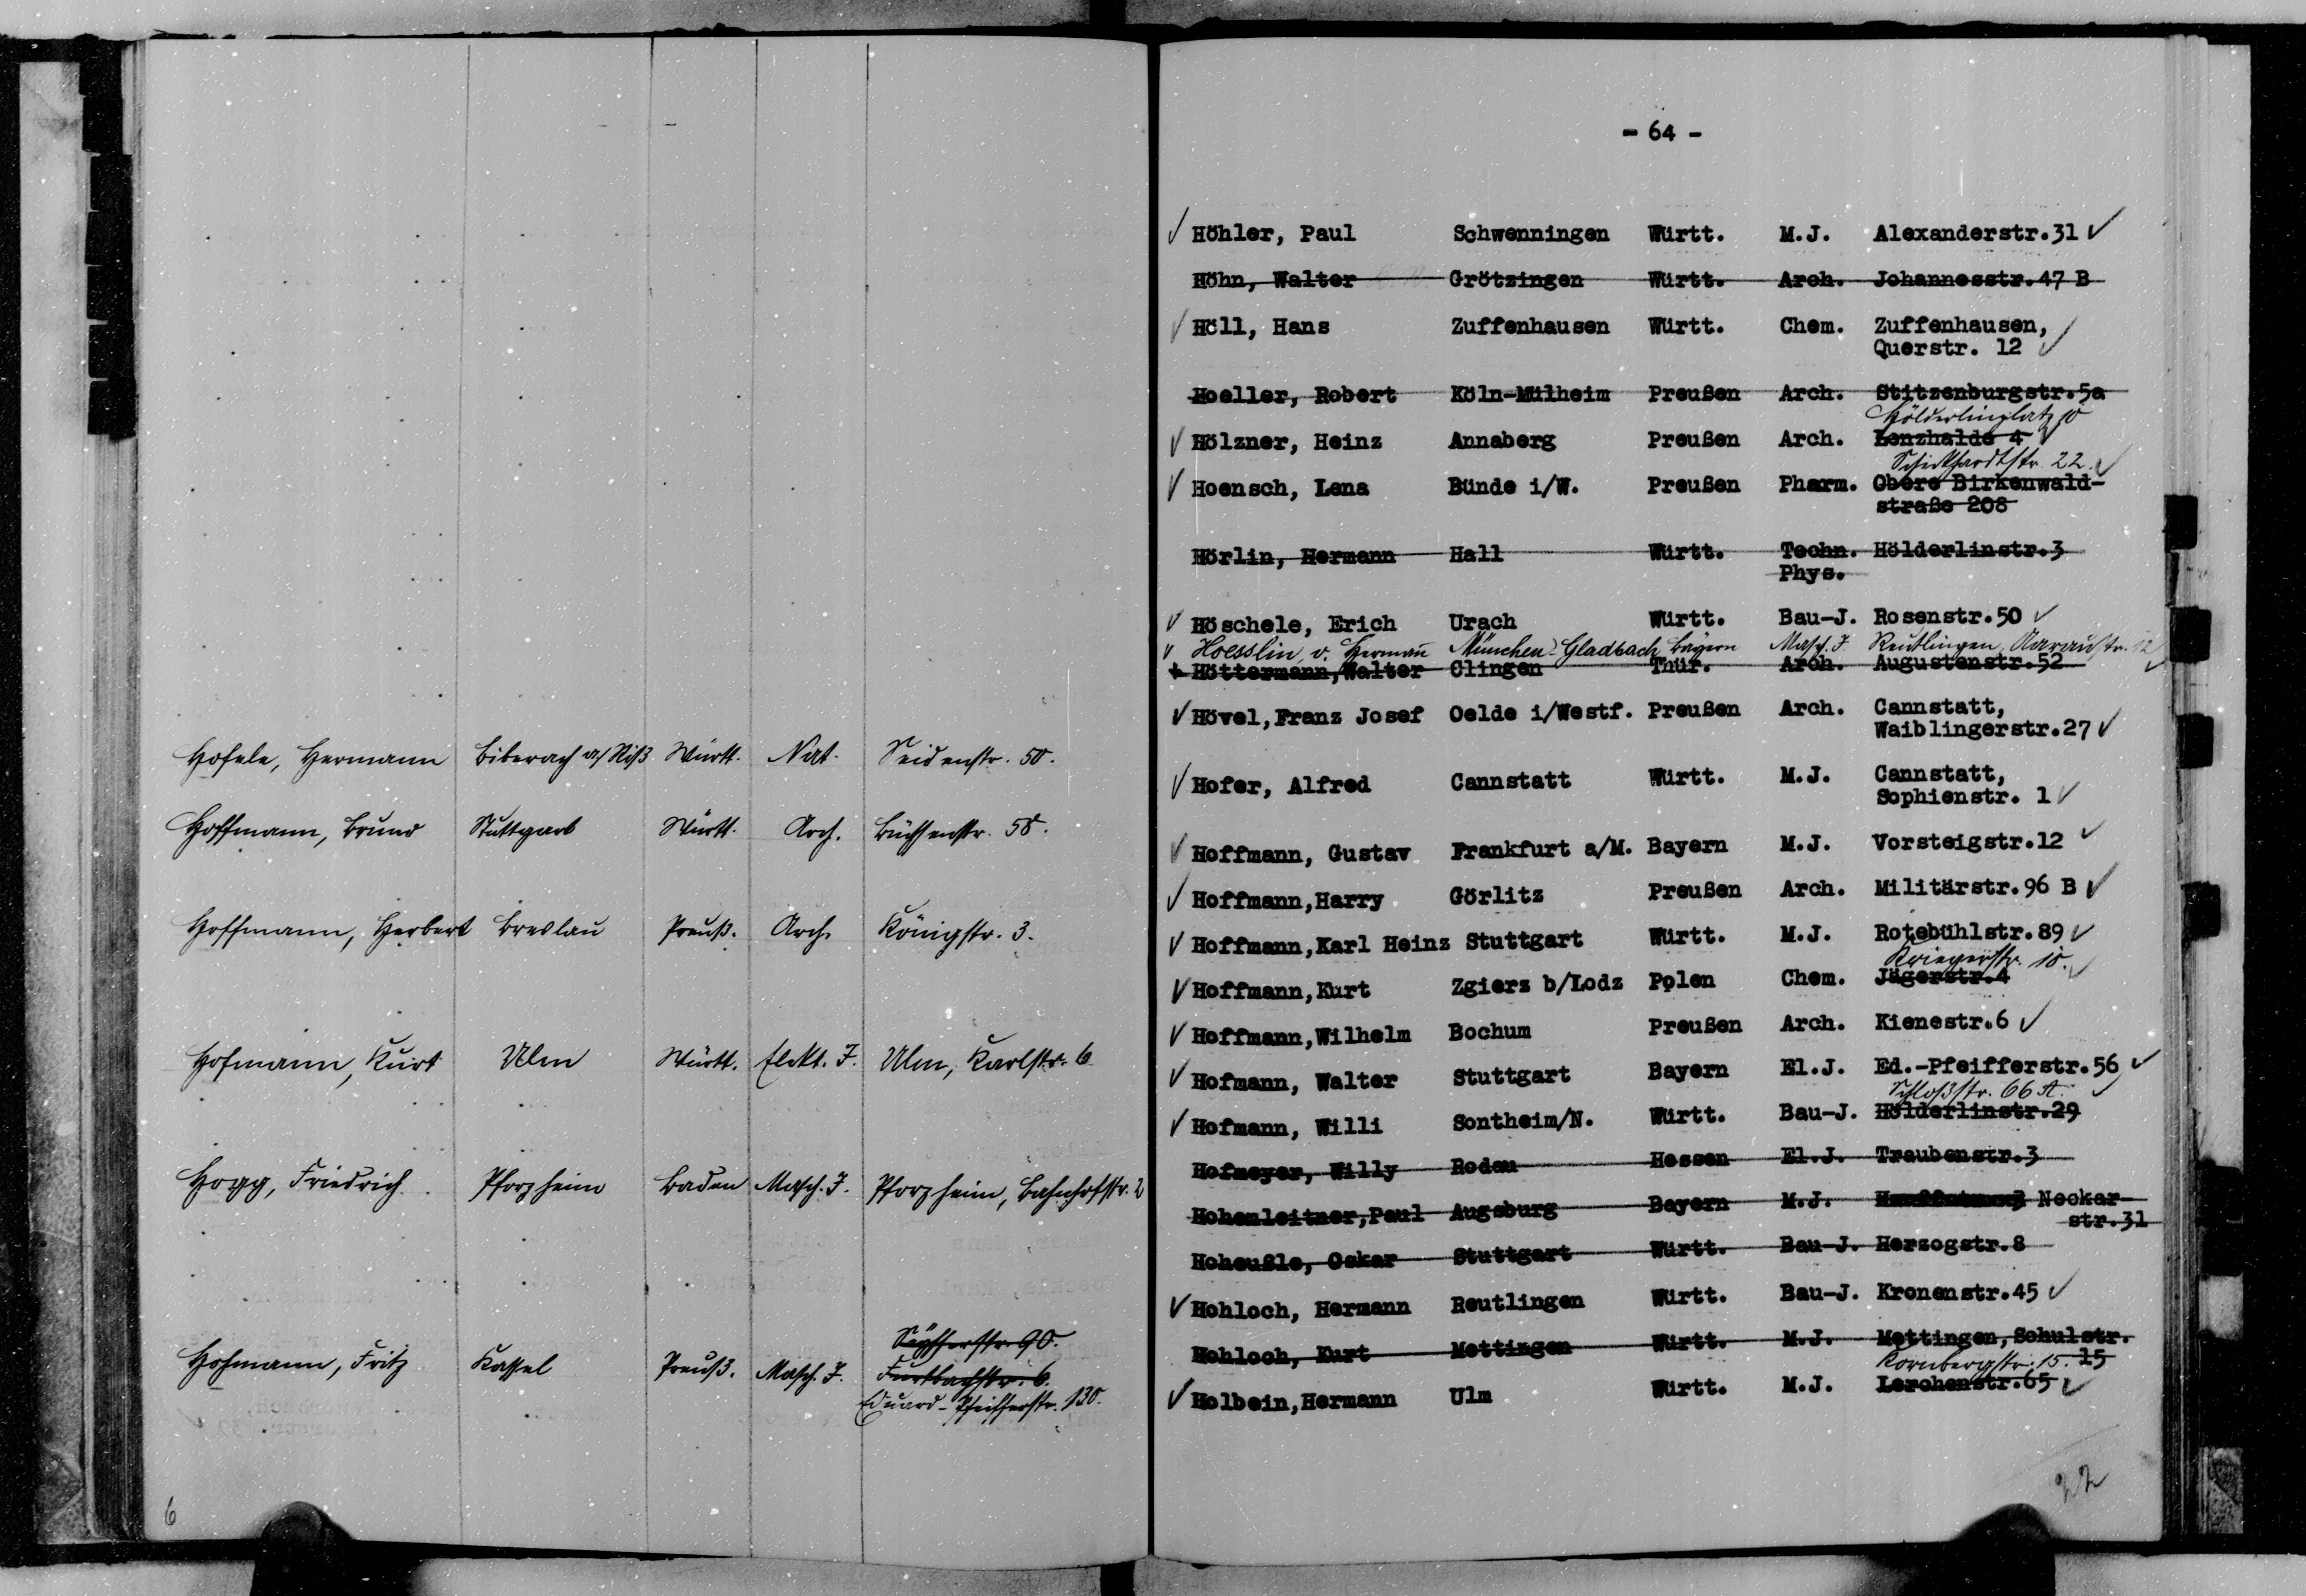 Hofele, Hermann Biberach a/Riß Württ. Nat. Seidenstr. 50.
Hoffmann, Bruno Stuttgart Württ. Arch. Büchsenstr. 58.
Hoffmann, Herbert Breslau Preuß. Arch. Königstr. 3.
Hofmann, Kurt Ulm Württ. Elekt. I. Ulm, Karlstr. 6
Hogg, Friedrich Pforzheim Baden Masch. I. Pforzheim, Bahnhofstr. 2
90.
Hohmann, Fritz Kassel Preuß. Masch. I. Furtbachstr. 6.
Eduard-Pfeifferstr. 130.
6
- 64 -
Höhler, Paul Schwenningen Württ. M.J. Alexanderstr.31
Höhn, Walter Grötzingen Württ. Arch. Johannesstr.47 B
Höll, Hans Zuffenhausen Württ. Chem. Zuffenhausen,
Querstr. 12
Hoeller, Robert Köln-Mülheim Preußen Arch. Stitzenburgstr.5a
Hölderlinplatz
Hölzner, Heinz Annaberg Preußen Arch. Lenzhalde 4
Schickhardtstr. 22.
Hoensch, Lena Bünde i/W. Preußen Pharm. Obere Birkenwald-
straße 208
Hörlin, Hermann Hall Württ. Techn. Hölderlinstr.3
Phys.
Höschele, Erich Urach Württ. Bau-J. Rosenstr.50
Hoesslin, v. Hermann München-Gladbach Bayern Masch. I Reutlingen, Aaraustr. 12
Höttermann,Walter Clingen Thür. Arch. Augustenstr.52
Hövel,Franz Josef Oelde i/Westf. Preußen Arch. Cannstatt,
Waiblingerstr.27
Hofer, Alfred Cannstatt Württ. M.J. Cannstatt,
Sophienstr. 1
Hoffmann, Gustav Frankfurt a/M. Bayern M.J. Vorsteigstr.12
Hoffmann,Harry Görlitz Preußen Arch. Militärstr.96 B
Hoffmann,Karl Heinz Stuttgart Württ. M.J. Rotebühlstr.89
Kriegerstr. 18.
Hoffmann,Kurt Zgierz b/Lodz Polen Chem. Jägerstr.4
Hoffmann,Wilhelm Bochum Preußen Arch. Kienestr.6
Hofmann, Walter Stuttgart Bayern El.J. Ed.-Pfeifferstr.56
Schloßstr. 66 A.
Hofmann, Willi Sontheim/N. Württ. Bau-J. Hölderlinstr.29
Hofmeyer, Willy Rodau Hessen El.J. Traubenstr.3
Hohenleitner,Paul Augsburg Bayern M.J. Neckar-
str.31
Hoheußle, Oskar Stuttgart Württ. Bau-J. Herzogstr.8
Hohloch, Hermann Reutlingen Württ. Bau-J. Kronenstr.45
Hohloch, Kurt Mettingen Württ. M.J. Mettingen,Schulstr.
Kornbergstr. 15. 15
Holbein,Hermann Ulm Württ. M.J. Lerchenstr.65
22